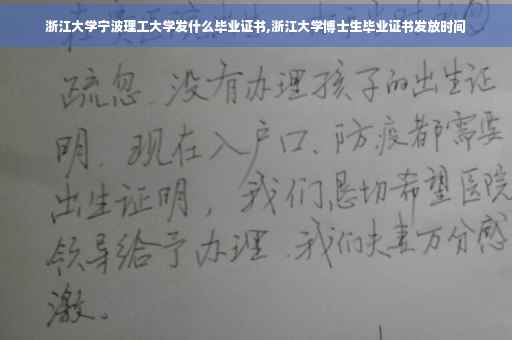 浙江大学宁波理工大学发什么毕业证书,浙江大学博士生毕业证书发放时间
疏忽、没有办理孩子的出生证
明、现在入户口、防疫都需要
出生证明，我们恳切希望医院
领导给予办理、我们夫妻万分感
激。